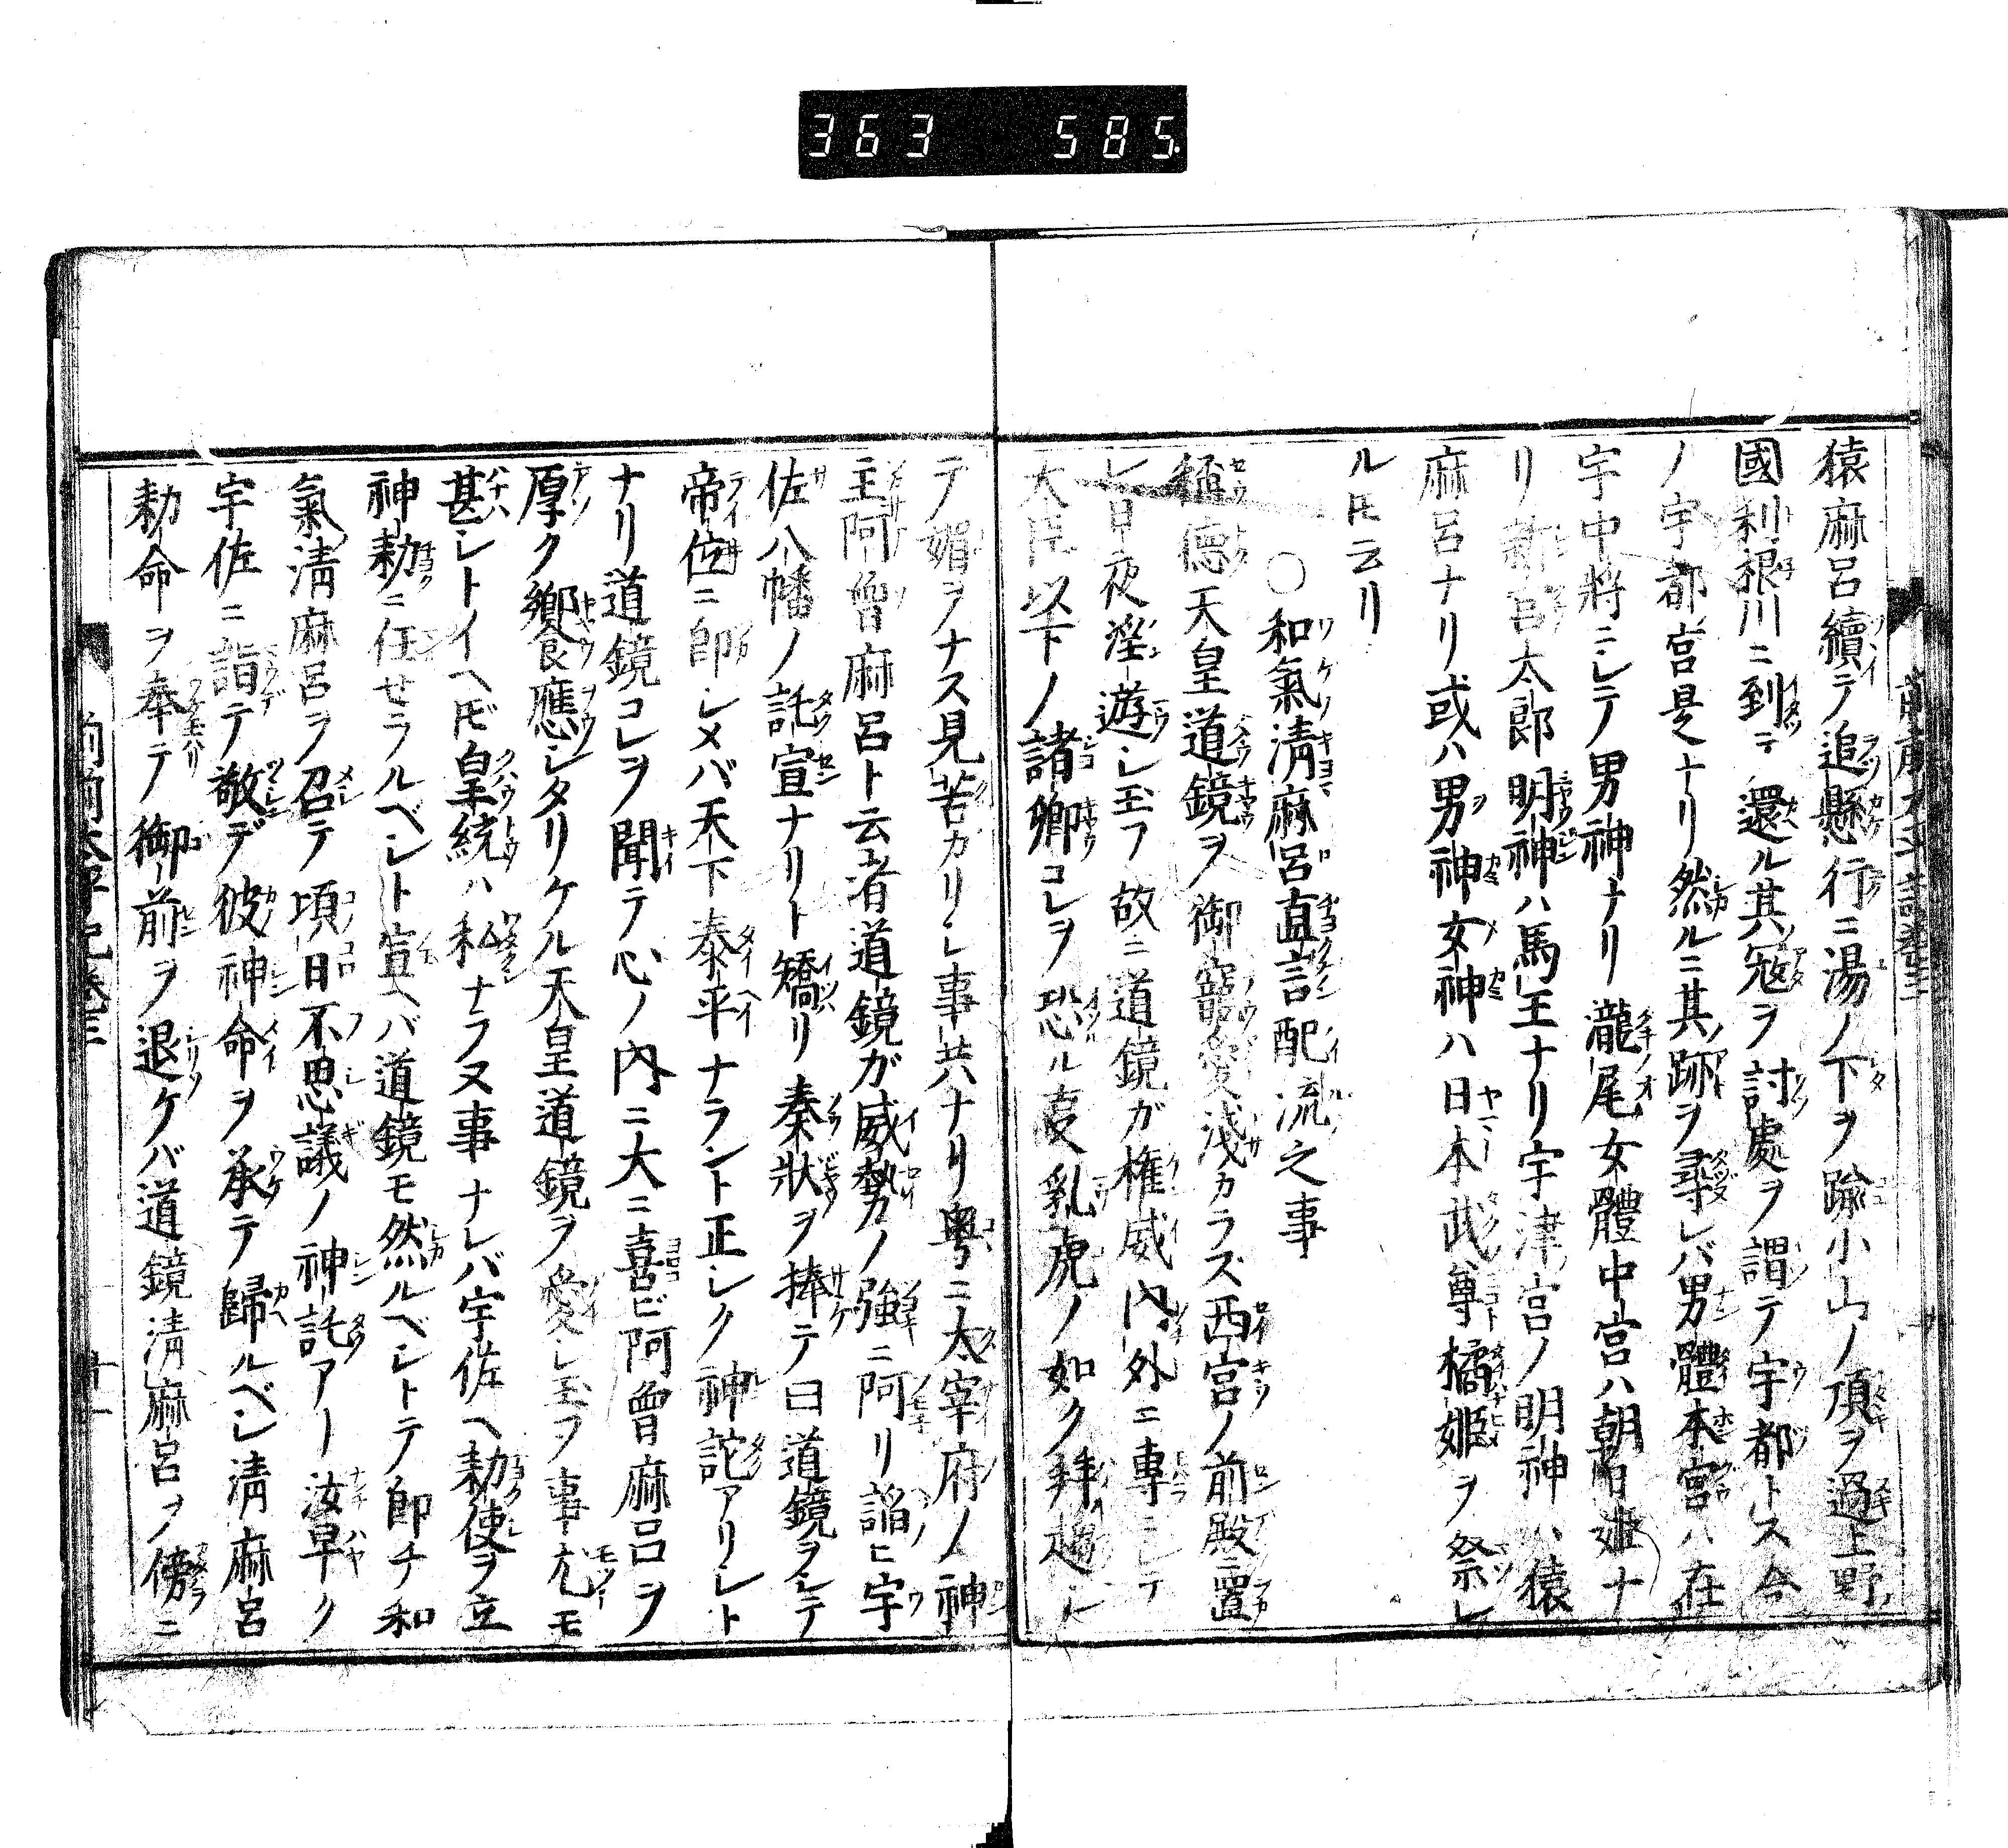 363 585
猿麻呂續テ追懸行ニ湯ノ下ヲ踰小山ノ頂ヲ過上野
國利根川ニ到テ還ル其冦ヲ討處ヲ謂テ宇都トス今
ノ宇都宮是ナリ然ルニ其跡ヲ尋レバ男體本宮ハ在
宇中將ニシテ男神ナリ瀧尾女體中宮ハ朝日姫ナ
リ新宮太郎明神ハ馬王ナリ宇津宮ノ明神ハ猿
麻呂ナリ或ハ男神女神ハ日本武尊橘姫ヲ祭レ
ルトモ云リ
○和氣清麻呂直言配流之事
稱德天皇道鏡ヲ御寵愛淺カラズ西宮ノ前殿ニ置
レ日夜淫遊シ玉フ故ニ道鏡ガ権威内外ニ專ニシテ
大臣以下ノ諸卿コレヲ恐ル事乳虎ノ如ク拜趨シ
テ媚ヲナス見苦カリシ事共ナリ粤ニ太宰府ノ神
主阿曾麻呂ト云者道鏡ガ威勢ノ強ニ阿リ諂ヒ宇
佐八幡ノ託宣ナリト矯リ奏狀ヲ捧テ曰道鏡ヲシテ
帝位ニ即シメバ天下泰平ナラント正シク神託アリシト
ナリ道鏡コレヲ聞テ心ノ内ニ大ニ喜ビ阿曾麻呂ヲ
厚ク饗應シタリケル天皇道鏡ヲ愛シ玉フ事尤モ
甚シトイヘドモ皇統ハ私ナラヌ事ナレバ宇佐ヘ勅使ヲ立
神勅ニ任セラルベシト宣ヘバ道鏡モ然ルベシトテ即チ和
氣清麻呂ヲ召テ頃日不思議ノ神託アリ汝早ク
宇佐ニ詣テ敬デ彼神命ヲ承テ歸ルベシ清麻呂
勅命ヲ奉テ御前ヲ退ケバ道鏡清麻呂ヲ傍ニ
前前太平記卷三